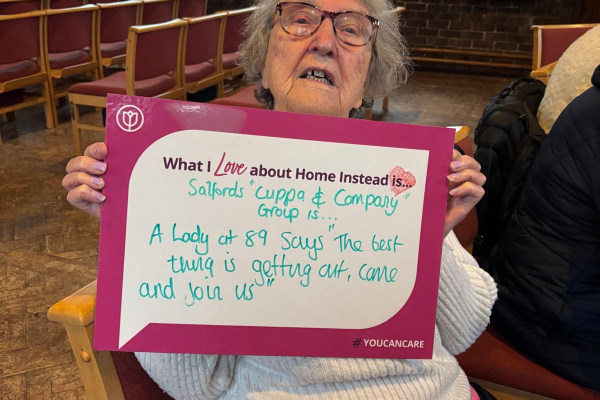 What I Love about Home Instead is...
Salfords "Cuppa & Company"
Group is...
A Lady at 89 Says "The best
thing is getting out, come
and join us"
#YOUCANCARE